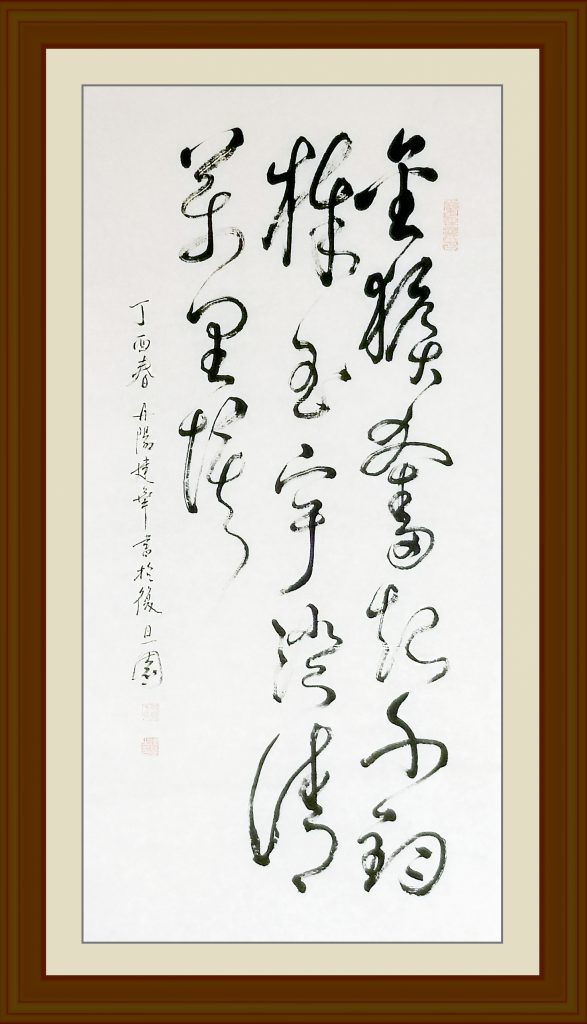 金猴奮起千鈞
棒玉宇澄清
萬里埃
丁酉春丹陽建華書於復旦園